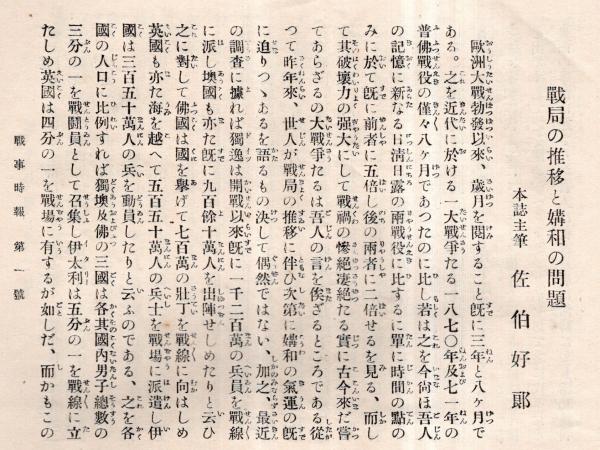 戰局の推移と媾和の問題
本誌主筆 佐伯好郞
歐洲大戰勃發以來、歲月を閲すること旣に三年と八ヶ月で
ある。之を近代に於ける一大戰爭たる一八七〇年及七一年の
普佛戰役の僅々八ヶ月であつたのに比し若は之を今尙ほ吾人
の記憶に新なる日淸日露の兩戰役に比するに單に時間の點の
みに於て旣に前者に五倍し後の兩者に二倍せるを見る、而し
て其破壞力の强大にして戰禍の慘絕凄絕たる實に古今來だ嘗
てあらざるの大戰爭たるは吾人の言を俟ざるところである從
つて昨年來、世人が戰局の推移に伴ひ次第に媾和の氣運の旣
に迫りつゝあるを語るもの決して偶然ではない、加之、最近
の調査に據れば獨逸は開戰以來旣に一千二百萬の兵員を戰線
に派し墺國も亦た旣に九百餘十萬人を出陣せしめたりと云ひ
之に對して佛國は國を擧げて七百萬の壯丁を戰線に向はしめ
英國も亦た海を越へて五百五十萬人の兵士を戰場に派遣し伊
國は三百五十萬人の兵を動員したりと云ふのである、之を各
國の人口に比例すれば獨墺及佛の三國は各其國內男子總數の
三分の一を戰鬪員として召集し伊太利は五分の一を戰線に立
たしめ英國は四分の一を戰場に有するが如しだ、而かもこの
戰事時報 第一號